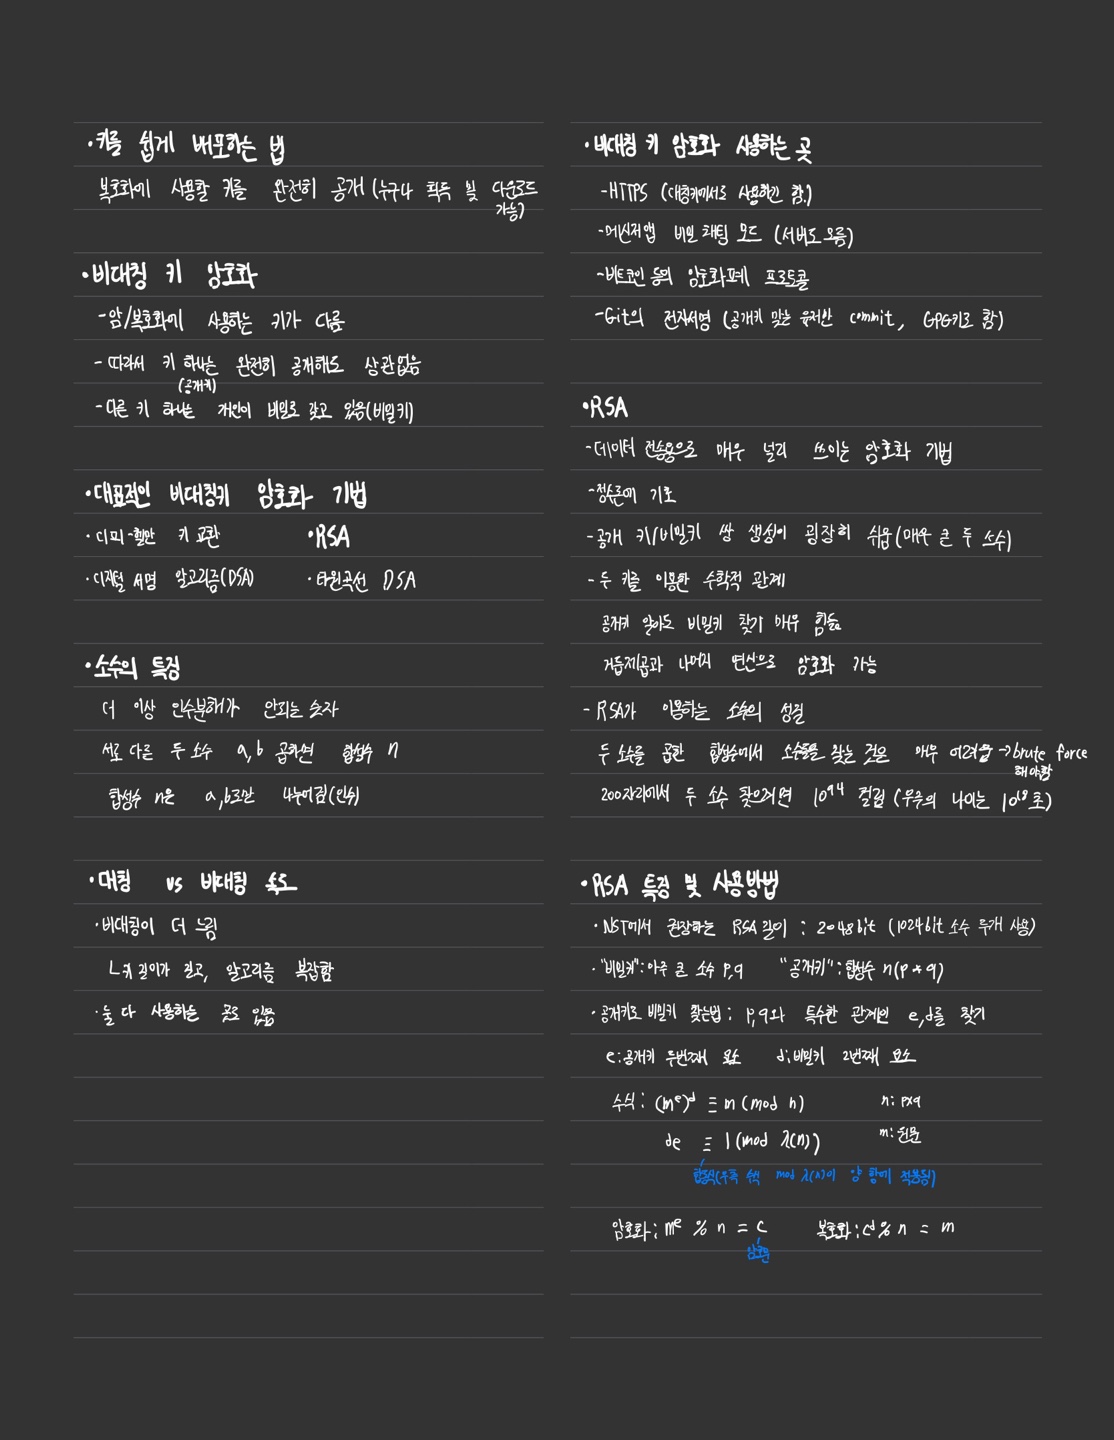 ·키를 쉽게 배포하는 법
복호화에 사용할 키를 완전히 공개 (누구나 획득 및 다운로드
가능)
·비대칭 키 암호화
-암/복호화에 사용하는 키가 다름
- 따라서 키 하나는 완전히 공개해도 상관없음
(공개키)
- 다른 키 하나는 개인이 비밀로 갖고 있음(비밀키)
·대표적인 비대칭키 암호화 기법
· 디피-헬만 키 교환 ·RSA
· 디지털 서명 알고리즘(DSA) ·타원곡선 DSA
·소수의 특징
더 이상 인수분해가 안되는 숫자
서로 다른 두 소수 a,b 곱하면 합성수 n
합성수 n은 a,b로만 나누어짐(인수)
·대칭 vs 비대칭 속도
·비대칭이 더 느림
ㄴ키 길이가 길고, 알고리즘 복잡함
·둘 다 사용하는 곳도 있음
·비대칭 키 암호화 사용하는 곳
-HTTPS (대칭키에서도 사용하긴 함.)
-메신저앱 비밀 채팅 모드 (서버도 모름)
-비트코인 등의 암호화폐 프로토콜
-Git의 전자서명 (공개키 맞는 유저만 commit, GPG키로 함)
·RSA
-데이터 전송용으로 매우 널리 쓰이는 암호화 기법
-정수론에 기초
-공개 키/비밀키 쌍 생성이 굉장히 쉬움(매우 큰 두 소수)
- 두 키를 이용한 수학적 관계
공개키 알아도 비밀키 찾기 매우 힘듦
거듭제곱과 나머지 연산으로 암호화 가능
- RSA가 이용하는 소수의 성질
두 소수를 곱한 합성수에서 소수들을 찾는 것은 매우 어려움 →brute force
해야함
200자리에서 두 소수 찾으려면 10⁹⁴ 걸림 (우주의 나이는 10¹⁸초)
·RSA 특징 및 사용방법
· NST에서 권장하는 RSA 길이 : 2048bit (1024bit 소수 두개 사용)
· "비밀키":아주 큰 소수 p,q "공개키":합성수 n(p*q)
· 공개키로 비밀키 찾는법: p,q와 특수한 관계인 e,d를 찾기
e:공개키 두번째 요소 d:비밀키 2번째 요소
수식: (mᵉ)ᵈ ≡ m (mod n) n: p×q
de ≡ 1(mod λ(n)) m:원문
합동식(우측 수식 mod λ(n)이 양 항에 적용됨)
암호화: mᵉ % n = c 복호화:cᵈ % n = m
암호문